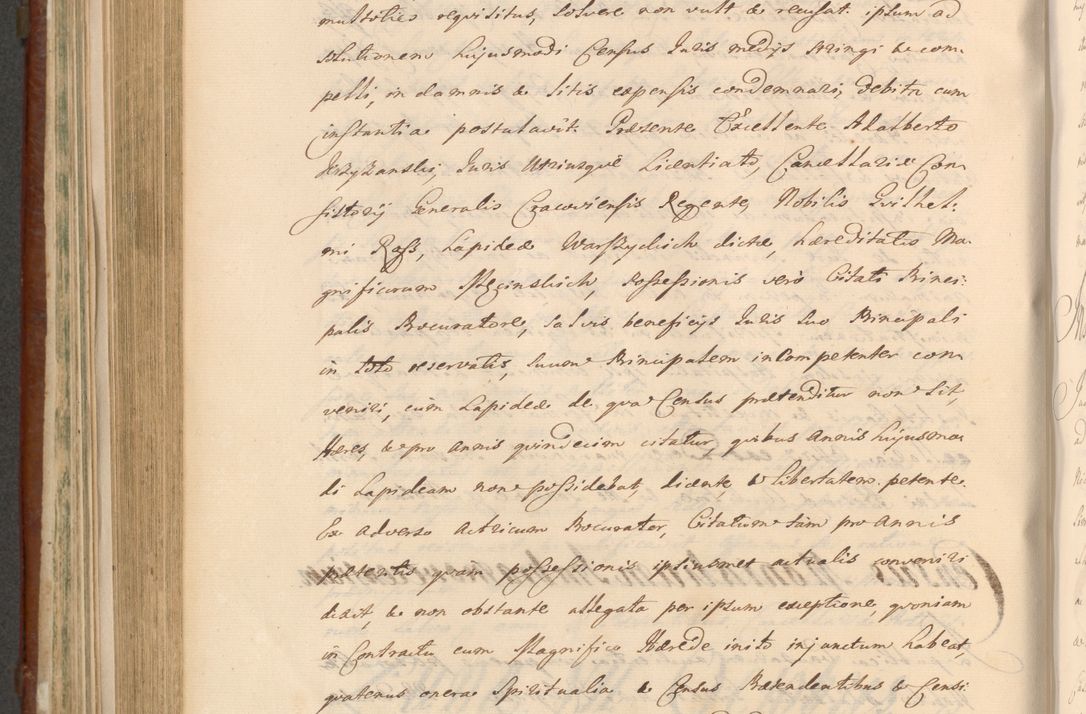 multoties requisitus, solvere non vult & recusat. ipsum ad
solutionem hujusmodi Census Juris medijs stringi & com
pelli, in damnis & litis expensis condemnari, debita cum
instantia postulavit. Præsente Excellente Adalberto
Krzyżanski, Juris Utriusque Licentiato, Cancellariæ Con
sistorij Generalis Cracoviensis Regente, Nobilis Guilhel:
mi Ross, Lapideæ Warszyckich dictæ, hæreditatis Ma:
gnificorum Męcinskich, Possessionis vero Citati Princi:
palis Procuratore, salvis beneficijs Juris suo Principali
in toto reservatis, suum Principalem incompetenter con
veniri, cum Lapideæ de qua Census prætenditur non sit,
Hæres, & pro annis quindecim citatur, quibus annis hujusmo
di Lapideam non possidebat, dicente, & libertatem petente.
Ex adverso actricum Procurator, Citatum tam pro annis
præteritis quam possessionis ipsiusmet actualis conveniri
dixit, & non obstante allegata per ipsum exceptione, quoniam
in Contractu cum Magnifico Hærede inito injunctum habeat,
quatenus onera Spiritualia & Census Prætendentibus & Censi: